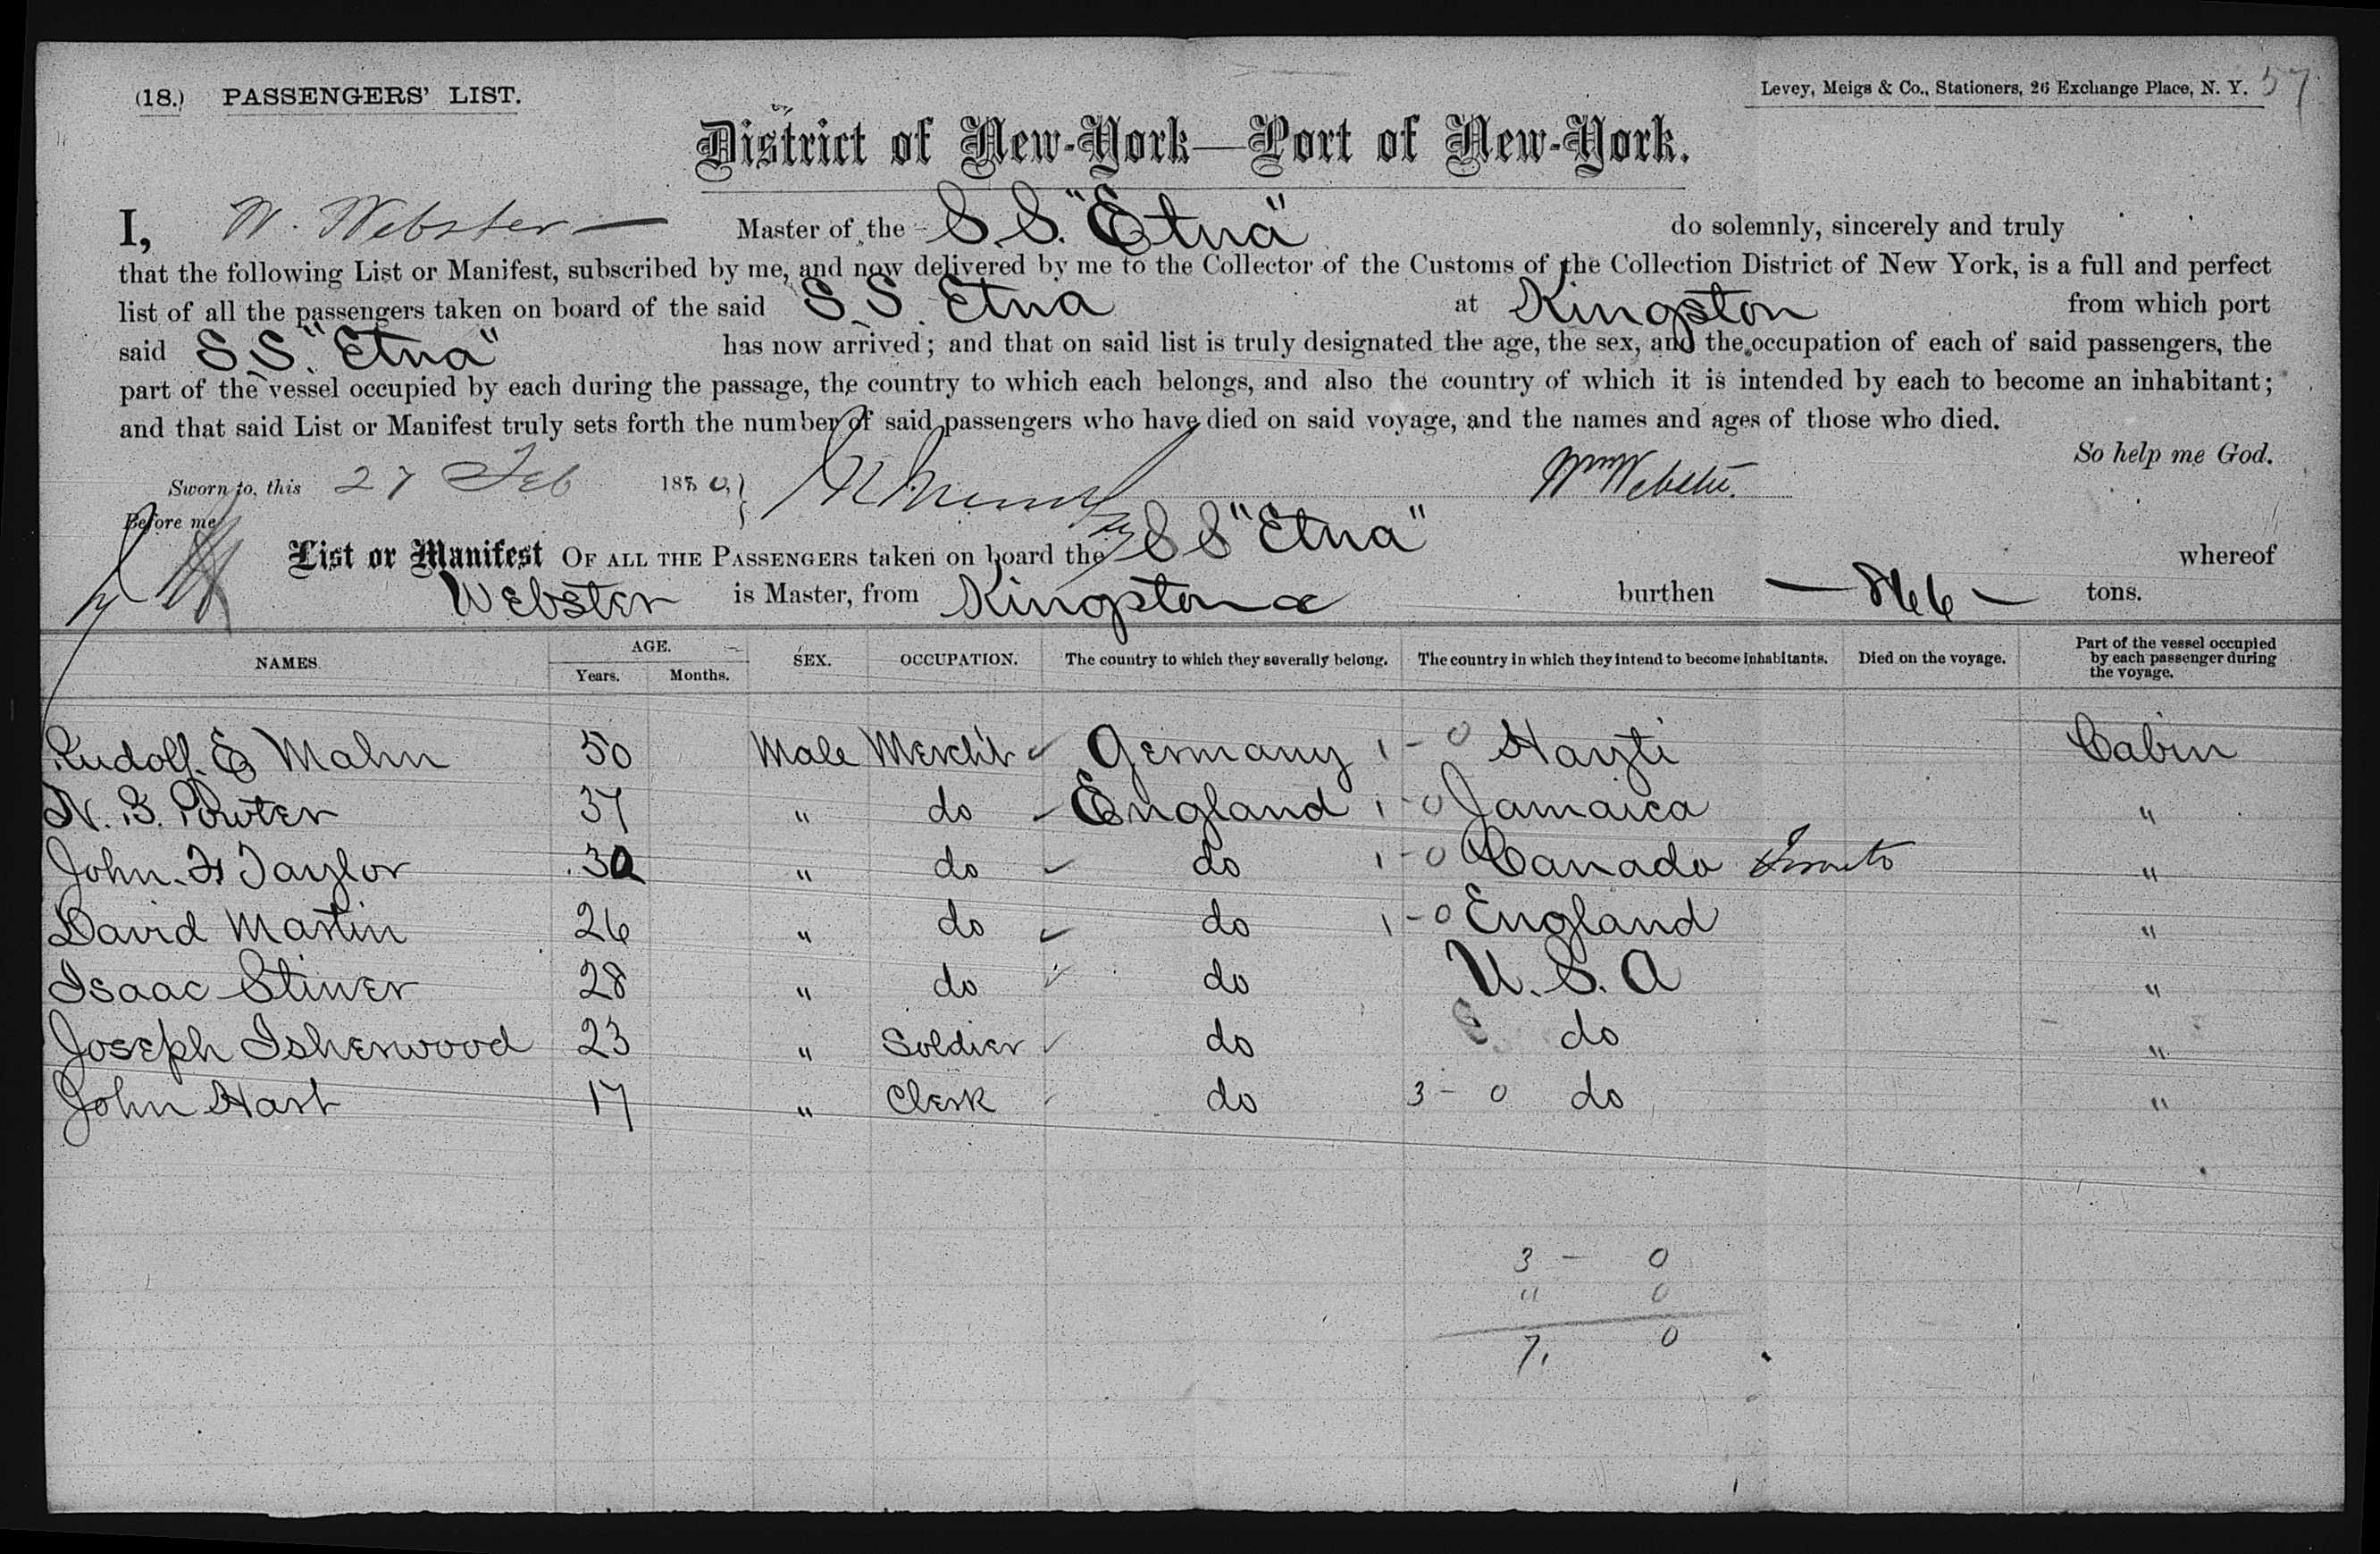 (18.) PASSENGERS' LIST.
Levey, Meigs & Co., Stationers, 26 Exchange Place, N. Y. 57
District of New-York—Port of New-York.
I, W. Webster — Master of the S.S. "Etna" do solemnly, sincerely and truly
that the following List or Manifest, subscribed by me, and now delivered by me to the Collector of the Customs of the Collection District of New York, is a full and perfect
list of all the passengers taken on board of the said S.S. Etna at Kingston from which port
said S.S. "Etna" has now arrived; and that on said list is truly designated the age, the sex, and the occupation of each of said passengers, the
part of the vessel occupied by each during the passage, the country to which each belongs, and also the country of which it is intended by each to become an inhabitant;
and that said List or Manifest truly sets forth the number of said passengers who have died on said voyage, and the names and ages of those who died.
So help me God.
Sworn to, this 27 Feb 1880, Wm Webster.
Before me
List or Manifest OF ALL THE PASSENGERS taken on board the SS "Etna" whereof
Webster is Master, from Kingston burthen — 866 — tons.
NAMES. AGE. Years. Months. SEX. OCCUPATION. The country to which they severally belong. The country in which they intend to become inhabitants. Died on the voyage. Part of the vessel occupied by each passenger during the voyage.
Rudolf. E Mahn 50 Male Merch't Germany 1 - 0 Hayti Cabin
N. B. Powter 37 " do England 1 - 0 Jamaica "
John. F Taylor 30 " do do 1 - 0 Canada Toronto "
David Martin 26 " do do 1 - 0 England "
Isaac Stiner 28 " do do U. S. A "
Joseph Isherwood 23 " Soldier do do "
John Hart 17 " Clerk do 3 - 0 do "
3 - 0
4 0
7. 0